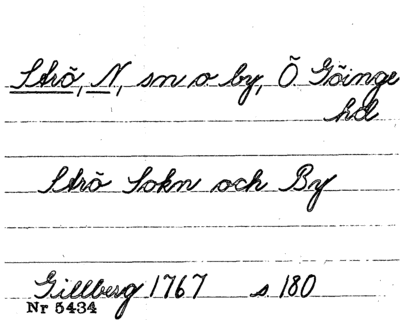 Strö, N, sn o by, Ö. Göinge
hd
Strö Sokn och By
Gillberg 1767 s 180
Nr 5434